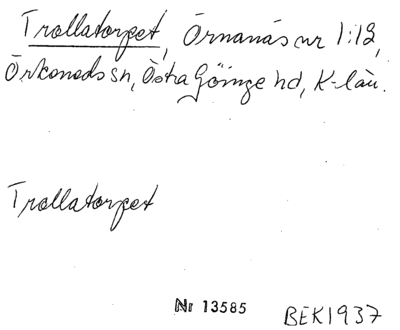 Trollatorpet, Örnanäs nr 1:12,
Örkeneds sn, Östra Göinge hd, K-län.
Trollatorpet
Nr 13585 BEK1937